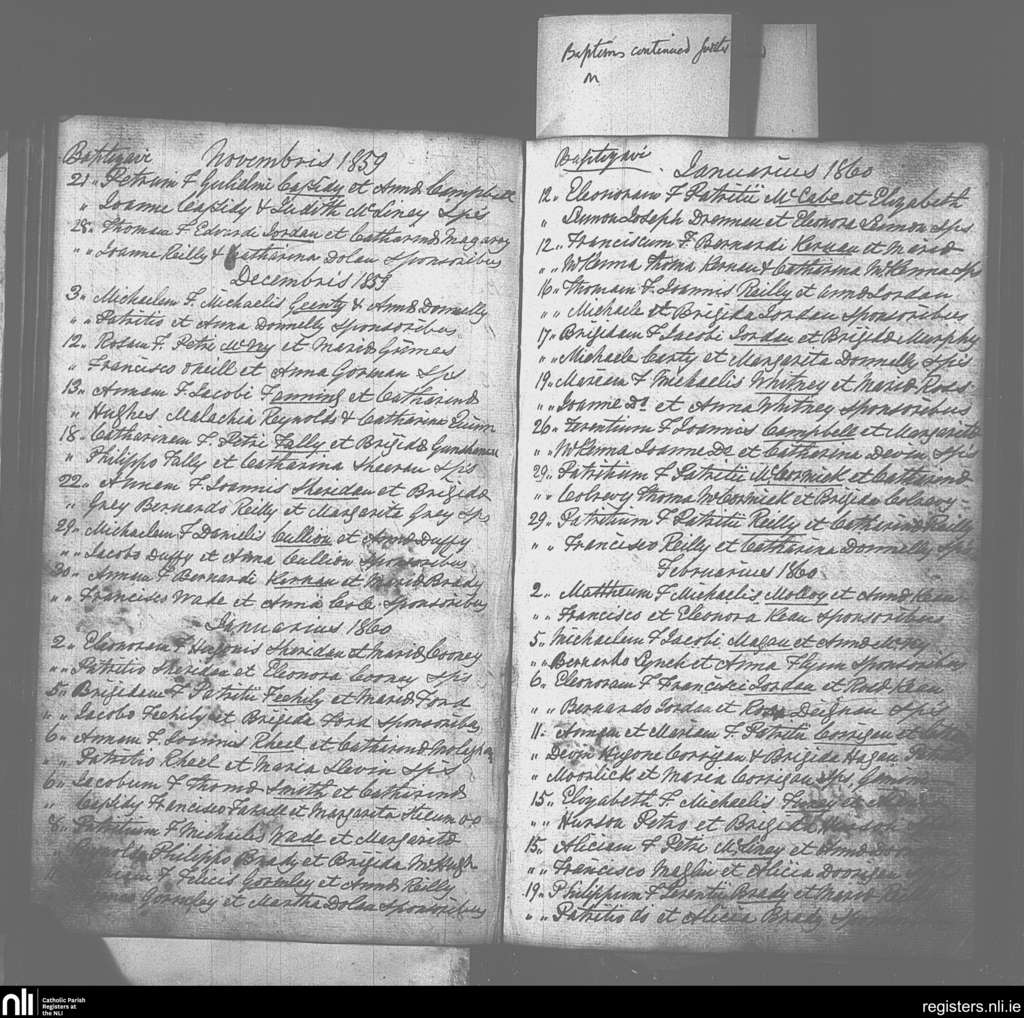 Baptisms continued
Baptizavi Novembris 1859
21 " Petrum F Gulielmi Cassidy et Annæ Campbell
" Joanne Cassidy & Judith McLiney Sps
28 " Thomam F Edvardi Jordan et Catharinæ Magarry
" " Joanne Reilly & Catharina Dolan Sponsoribus
Decembris 1859
3 " Michaelem F. Michaelis Geenty & Annæ Donnelly
" " Patritio et Anna Donnelly Sponsoribus
12 " Rosam F. Petri McVey et Mariæ Grimes
" Francisco Oneill et Anna Gorman Sps
13 " Annam F. Jacobi Fanning et Catharinæ
" Hughes Malachia Reynolds & Catharina Quinn
18 " Catharinam F. Petri Fally et Brigidæ
" Philippo Fally et Catharina Sheeran Sps
22 " Annam F. Joannis Sheridan et Brigidæ
" Grey Bernardo Reilly et Margarita Grey Sps
29 " Michaelem F Danielis Cullion et Annæ Duffy
" " Jacobo Duffy et Anna Cullion Sponsoribus
30 " Annam F Bernardi Kernan et Mariæ Brady
" " Francisco Wade et Anna Cole Sponsoribus
Januarius 1860
2 " Eleonoram F Hugonis Sheridan et Mariæ Cooney
" " Patritio Sheridan et Eleonora Cooney Sps
5 " Brigidam F Patritii Feehily et Mariæ Ford
" " Jacobo Feehily et Brigida Ford Sponsoribus
6 " Annam F. Joannis Kheel et Catharinæ
" " Patritio Kheel et Maria Slevin Sps
6 " Jacobum F Thomæ Smith et Catharinæ
" Cassidy Francisco et Margarita
8 " Patritium F Michaelis Wade et Margaritæ
Reynolds Philippo Brady et Brigida McHugh
F Felicis Gormley et Annæ Reilly
Gormley et Martha Dolan Sponsoribus
Baptizavi Januarius 1860
12 " Eleonoram F Patritii McCabe et Elizabeth
" Lennon Joseph Drennan et Eleonora Lennon Sps
12 " Franciscum F. Bernardi Kernan et Mariæ
" " McKenna Thoma Kernan & Catharina McKenna Sps
16 " Thomam F. Joannis Reilly et Annæ Jordan
" " Michaele et Brigida Jordan Sponsoribus
17 " Brigidam F. Jacobi Jordan et Brigidæ Murphy
" " Michaele Carty et Margarita Donnelly Sps
19 " Mariam F Michaelis Whitney et Mariæ Ross
" " Joanne Do et Anna Whitney Sponsoribus
26 " Terentium F Joannis Campbell et Margaritæ
" " McKenna Joanne Do et Catharina Devin Sps
29 " Patritium F Patritii McCormick et Catharinæ
" " Colreavy Thoma McCormick et Brigida Colreavy
29 " Patritium F Patritii Reilly et Catharinæ Reilly
" " Francisco Reilly et Catharina Donnelly Sps
Februarius 1860
2 " Mattheum F Michaelis Molloy et Annæ Kean
" " Francisco et Eleonora Kean Sponsoribus
5 " Michaelem F Jacobi Magan et Annæ McVey
" " Bernardo Lynch et Anna Flynn Sponsoribus
6 " Eleonoram F Francisci Jordan et Rosæ Kean
" " Bernardo Jordan et Rosa Deignan Sps
11 " Annam et Mariam F. Patritii Corrigan et
" Devin Hugone Corrigan & Brigida Hagan
" Moorlick et Maria Corrigan Sps
15 " Elizabeth F Michaelis Furey et
" " Hunson Petro et Brigida Hunson
15 " Aliciam F Petri McLiney et Annæ
" " Francisco Maglin et Alicia Doorigan
19 " Philippum F Terentii Brady et Mariæ
" " Patritio do et Alicia Brady
nli
Catholic Parish
Registers at
the NLI
registers.nli.ie